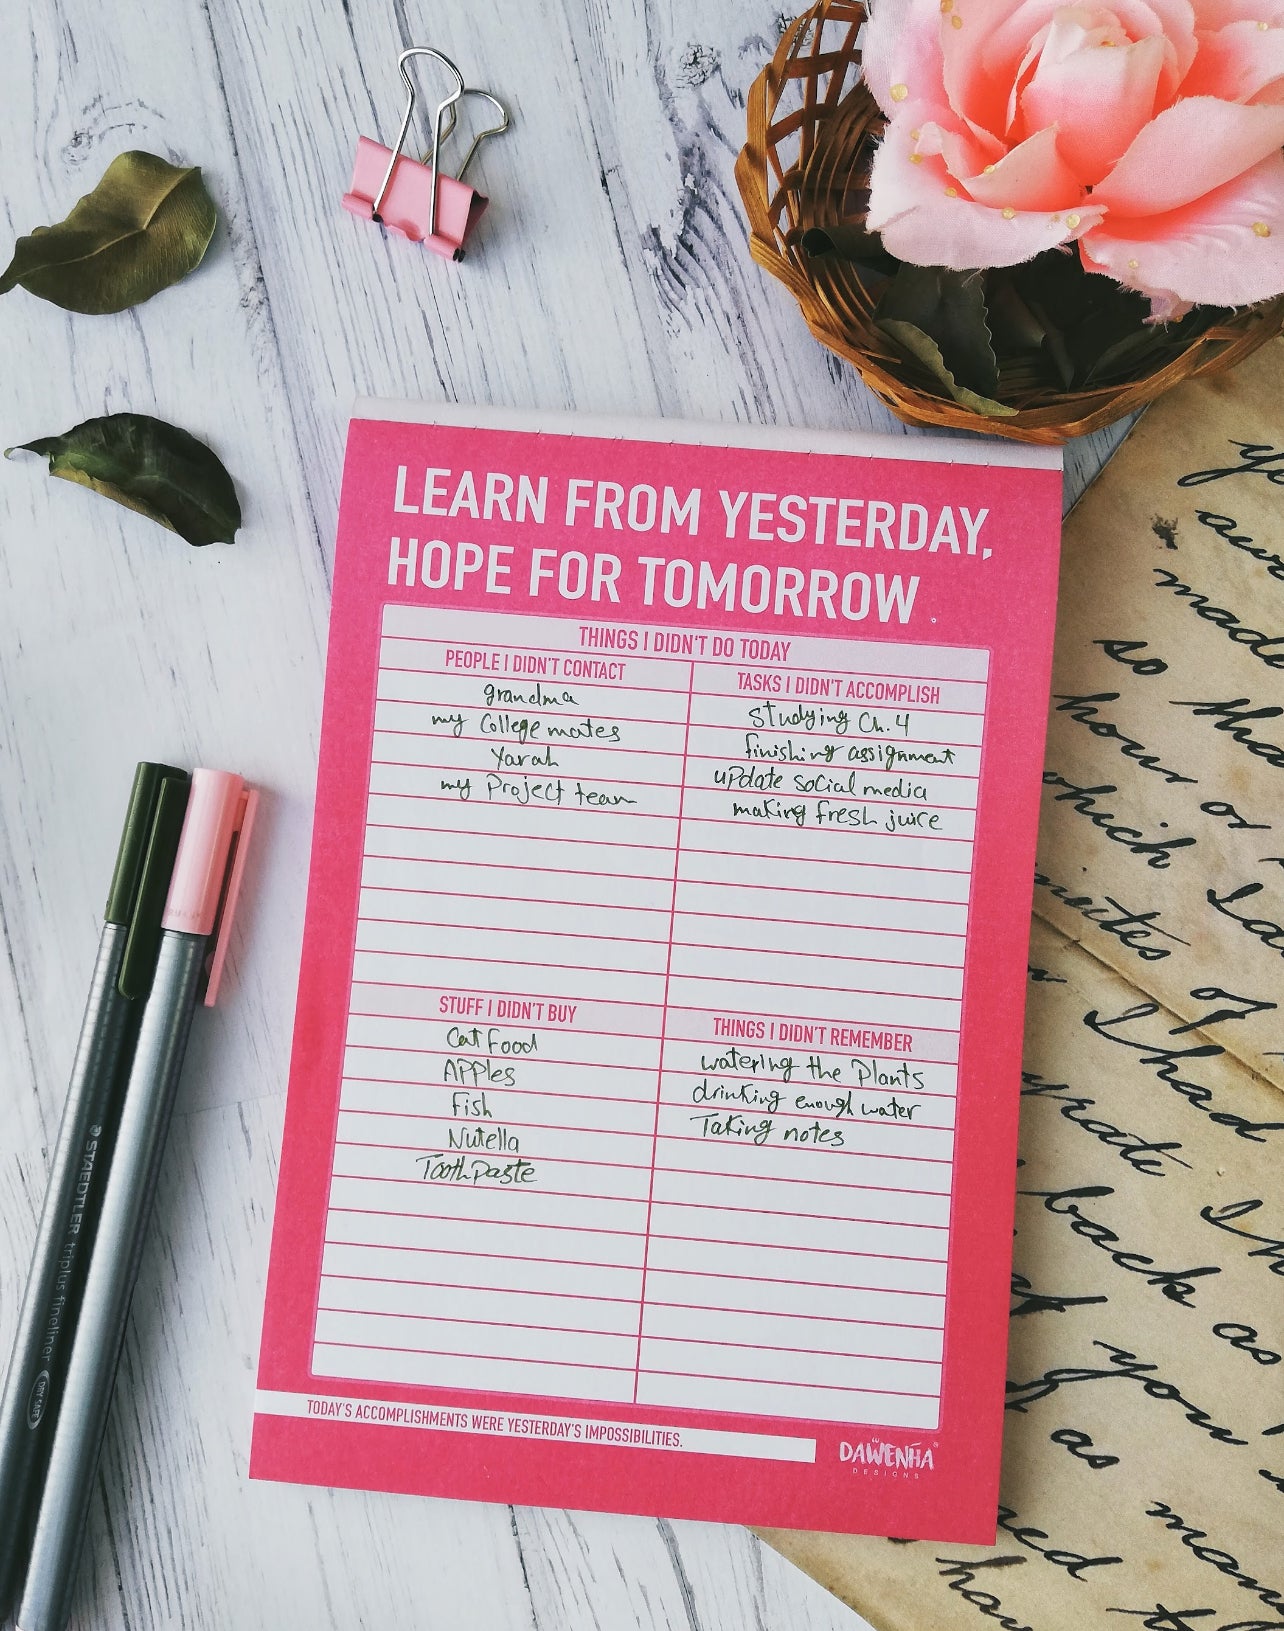 LEARN FROM YESTERDAY,
HOPE FOR TOMORROW.
THINGS I DIDN'T DO TODAY
PEOPLE I DIDN'T CONTACT
grandma
my College mates
Yarah
my Project team
TASKS I DIDN'T ACCOMPLISH
Studying Ch. 4
finishing assignment
update social media
making fresh juice
STUFF I DIDN'T BUY
Cat Food
Apples
Fish
Nutella
Toothpaste
THINGS I DIDN'T REMEMBER
watering the Plants
drinking enough water
Taking notes
TODAY'S ACCOMPLISHMENTS WERE YESTERDAY'S IMPOSSIBILITIES.
DAWENHA
DESIGNS
STAEDTLER triplus fineliner DRY SAFE
made
so tha
hour or
which I
minutes of
I had
I
back as
you
as
man